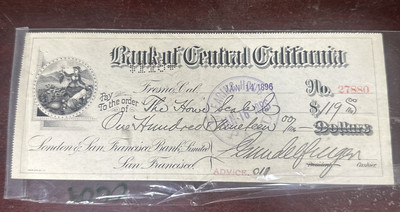 Bank of Central California
Fresno, Cal. JAN 14 1896 No. 27880
Pay To the order of The Howe Scale Co $119
One Hundred Nineteen 00/100 Dollars
London & San Francisco Bank, Limited
San Francisco. Cashier
ADVICE.